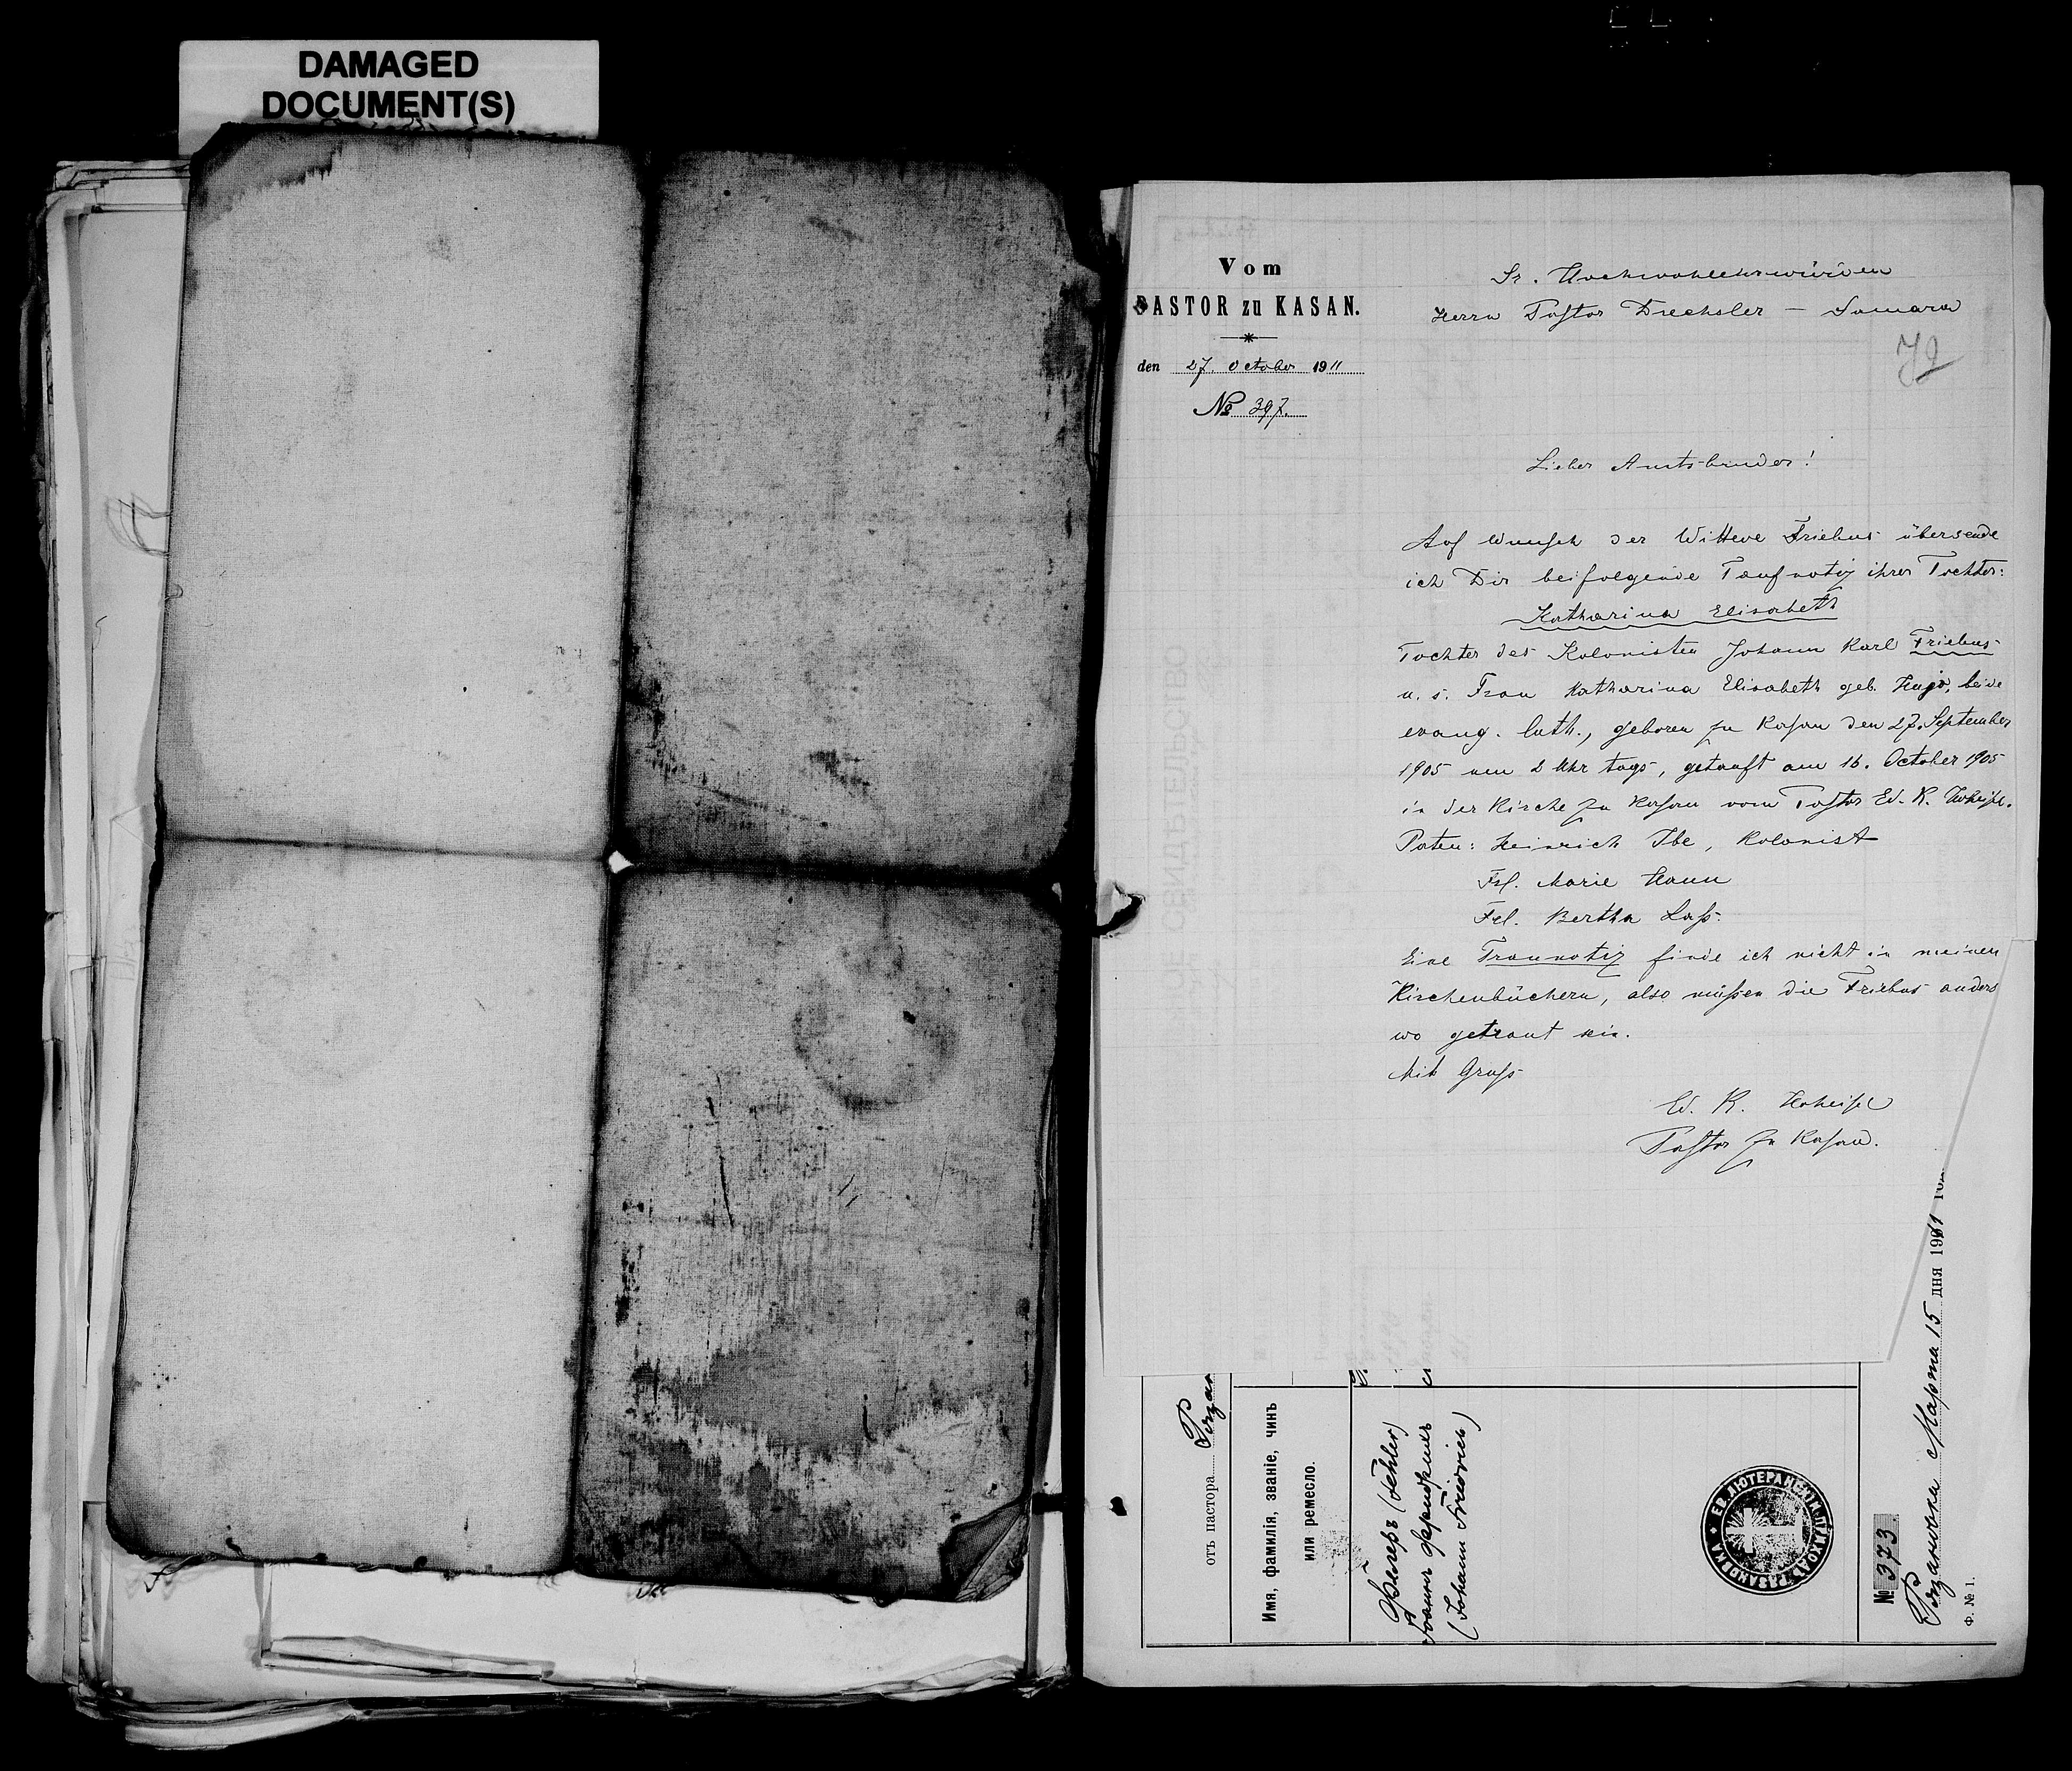 DAMAGED
DOCUMENT(S)
Vom
PASTOR zu KASAN.
den 27. October 1911
№ 397.
Sr. Hochwohlehrwürden
Herrn Pastor Drechsler – Samara
72
Lieber Amtsbruder!
Auf Wunsch der Wittwe Friebus übersende
ich Dir beifolgende Taufnotiz ihrer Tochter:
Katharina Elisabeth
Tochter des Kolonisten Johann Karl Friebus
u. s. Frau Katharina Elisabeth geb. Hugo, beide
evang. luth., geboren zu Kasan den 27. September
1905 um 2 Uhr tags, getauft am 16. October 1905
in der Kirche zu Kasan vom Pastor Ed. K. Hoheisel.
Paten: Heinrich Ibe, Kolonist
Frl. Marie Hann
Frl. Bertha Lass.
Eine Traunotiz finde ich nicht in meinen
Kirchenbüchern, also müssen die Friebus anders
wo getraut sein.
Mit Gruss
Ed. K. Hoheisel
Pastor zu Kasan.
отъ пастора
Имя, фамилія, званіе, чинъ
или ремесло.
(Johann Friedrich)
№ 373
Марта 15 дня 1911
Ф. № 1.